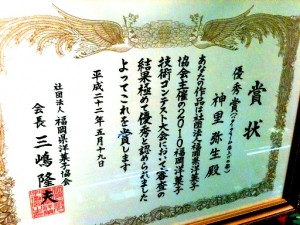 賞状
優秀賞
神里弥生殿
あなたの作品は社団法人福岡県洋菓子
協会主催の2010福岡洋菓子
技術コンテスト大会において審査の
結果極めて優秀と認められました
よってこれを賞します
平成二十二年五月十九日
社団法人 福岡県洋菓子協会
会長 三嶋隆夫